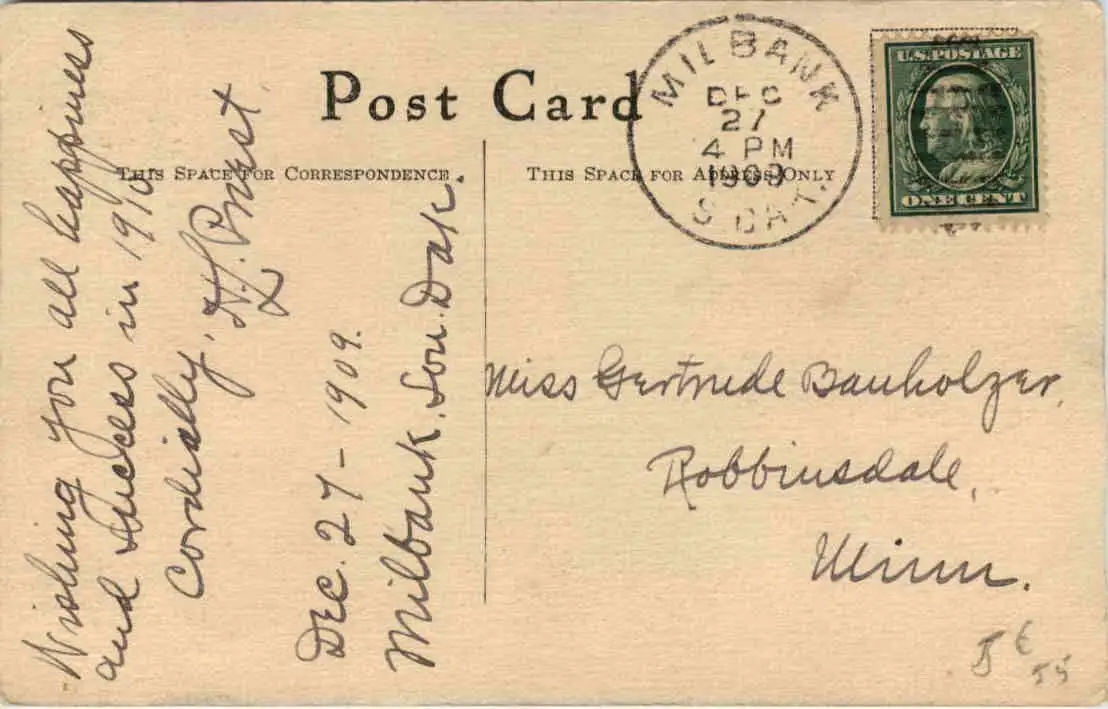 Post Card
THIS SPACE FOR CORRESPONDENCE.
THIS SPACE FOR ADDRESS ONLY
MILBANK
DEC
27
4 PM
1909
S. DAK.
U.S. POSTAGE
ONE CENT
Wishing you all happiness
and Success in 1910
Cordially,
Dec. 27 - 1909.
Milbank, Sou. Dak.
Miss Gertrude Bauholzer,
Robbinsdale,
Minn.